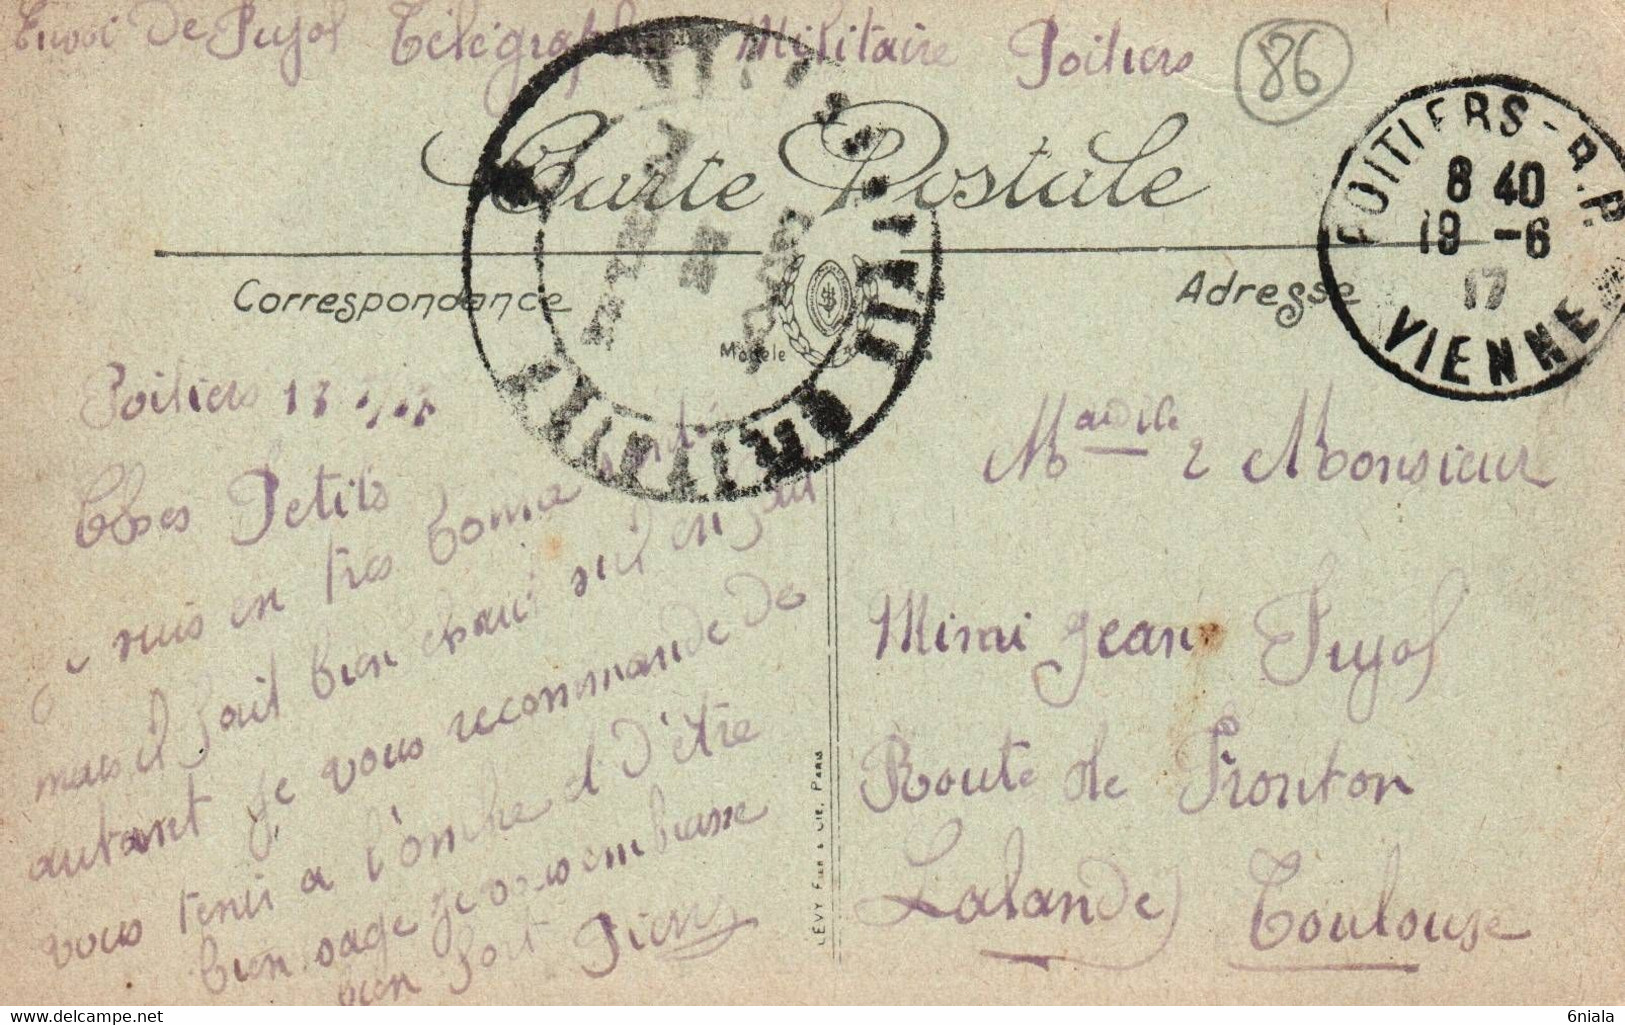 Envoi De Pujol Télégraphie Militaire Poitiers
86
Carte Postale
POITIERS - R.P.
8 40
19 - 6
17
VIENNE
Correspondance
Adresse
Modèle
Poitiers 18
Chers Petits
je suis en très bonne santé
mais il fait bien chaud s'il en fait
autant je vous recommande de
vous tenir a l'ombre et D'être
bien sage je vous embrasse
bien fort Pierre
LÉVY FILS & CIE, PARIS
2 Monsieur
Mimi Jean Pujol
Route de Fronton
Lalande) Toulouse
https://www.delcampe.net
6niala